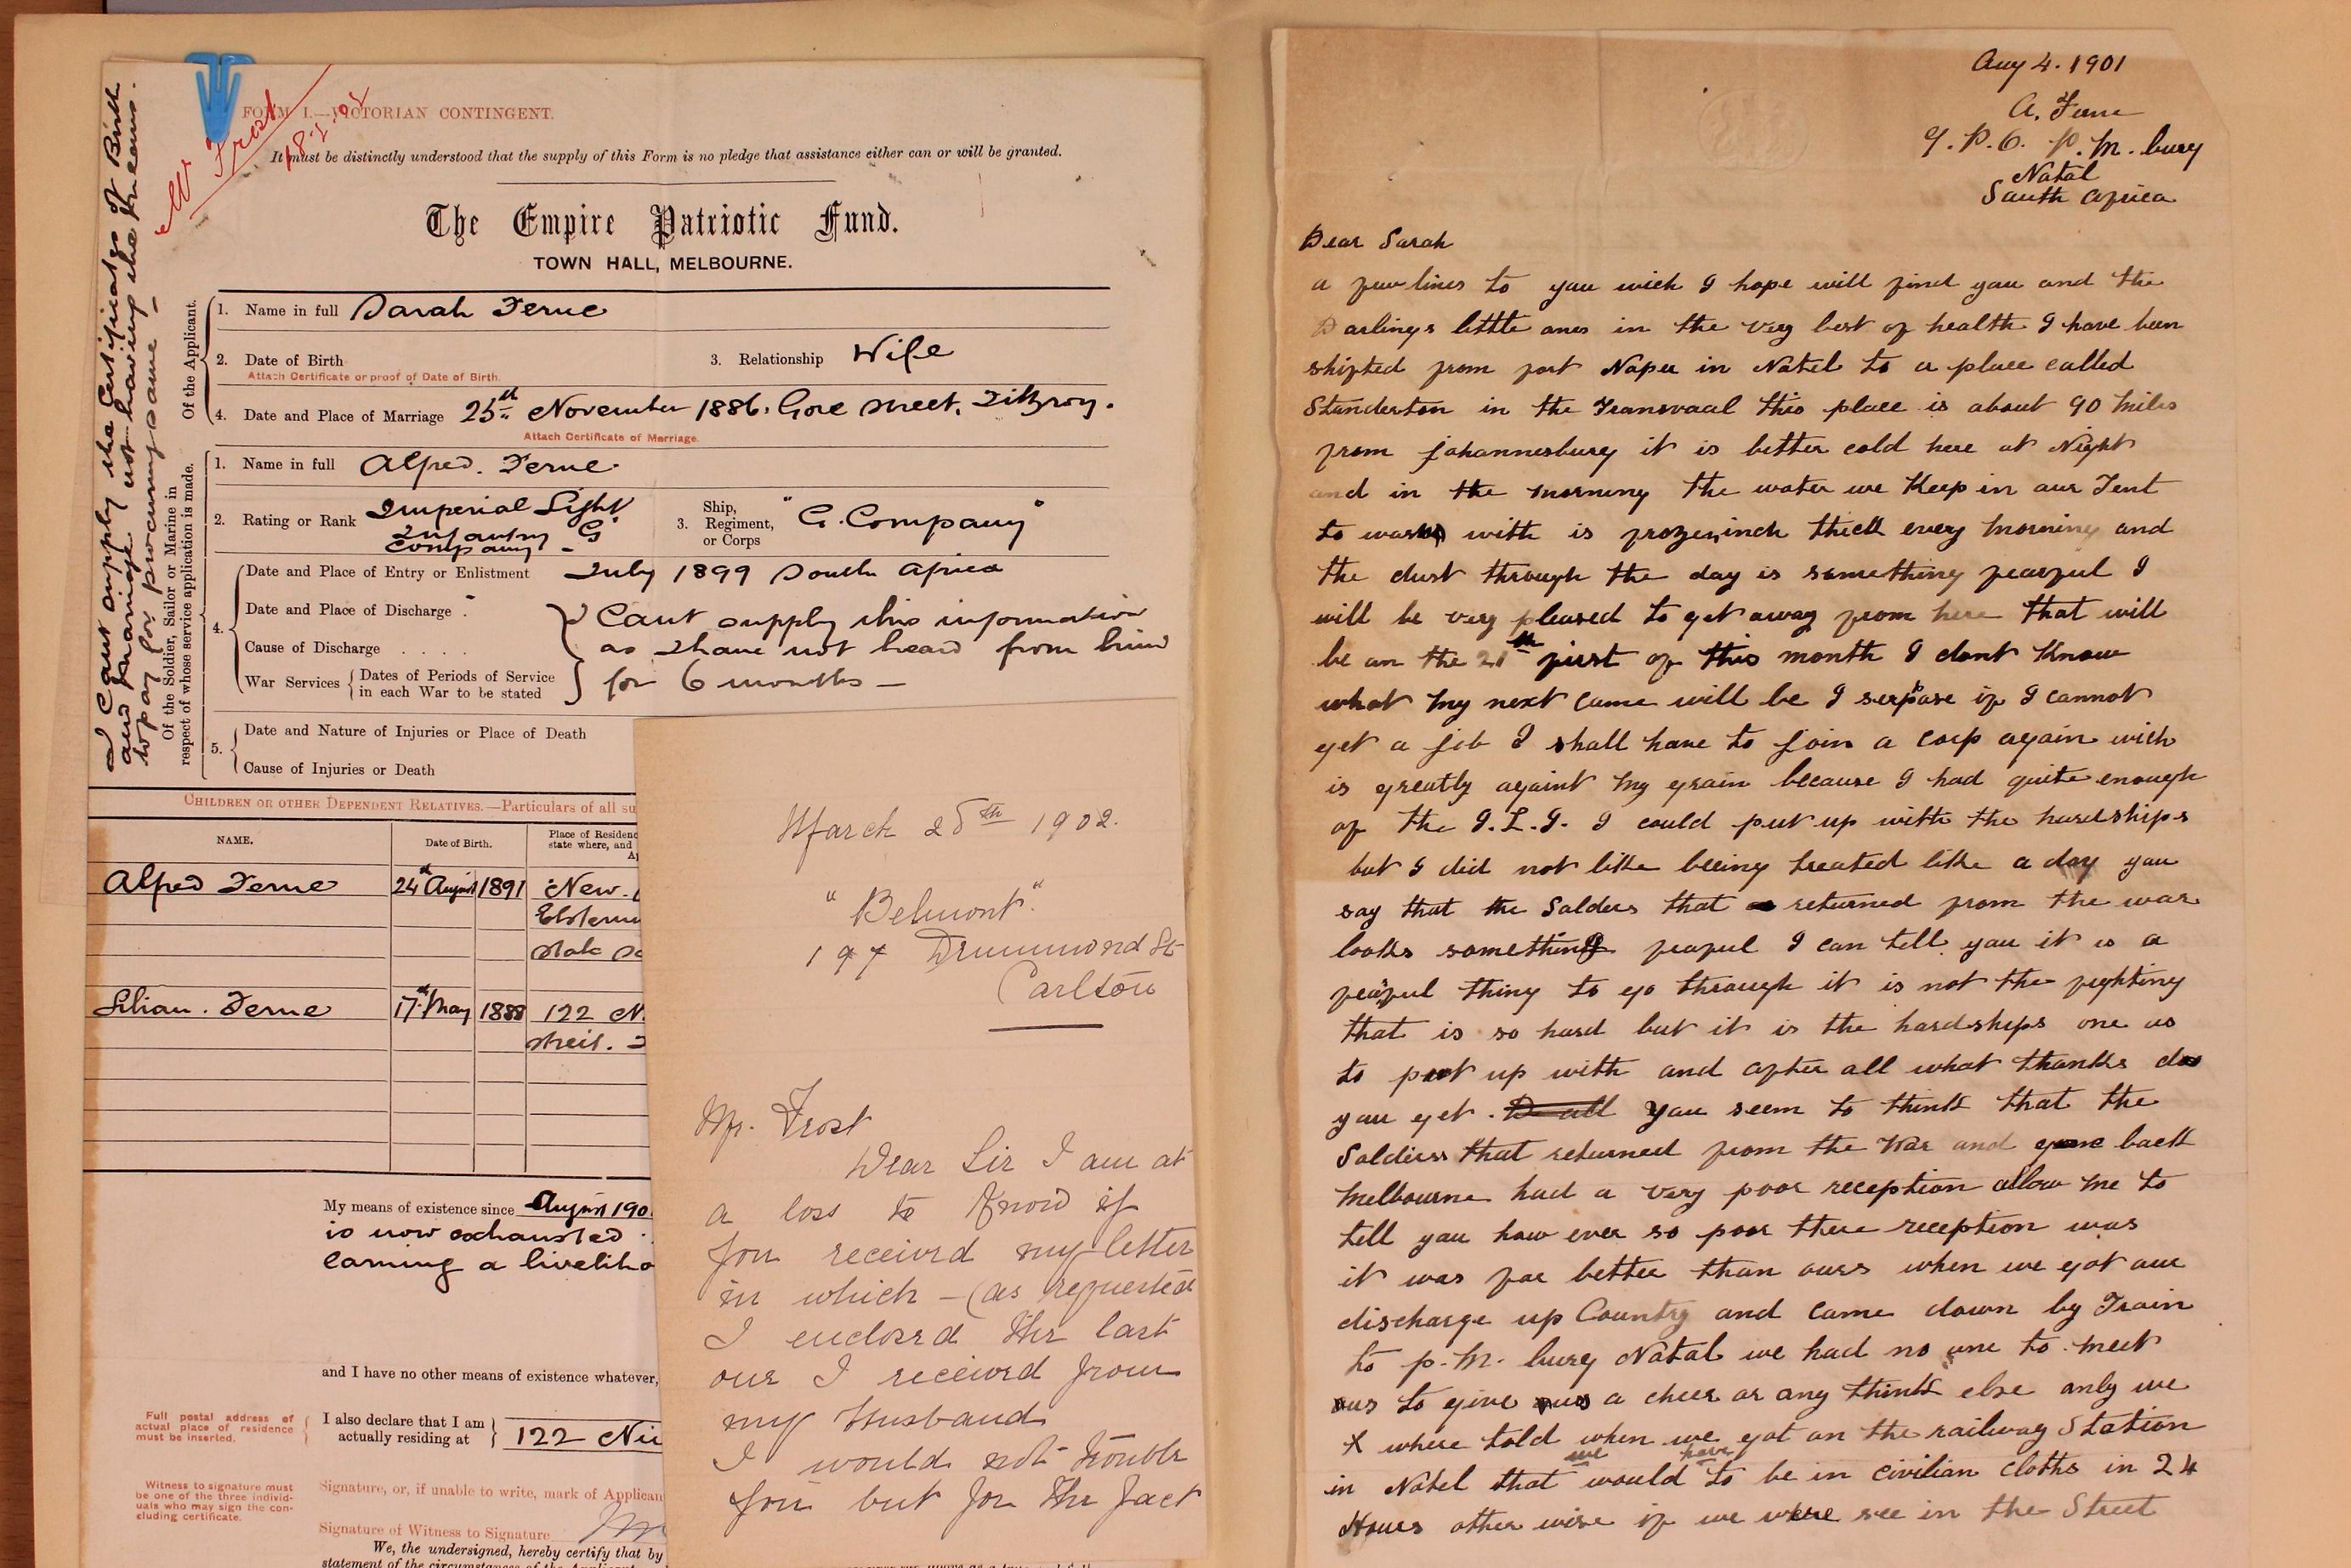 FORM I.—VICTORIAN CONTINGENT.
W Frost
It must be distinctly understood that the supply of this Form is no pledge that assistance either can or will be granted.
The Empire Patriotic Fund.
TOWN HALL, MELBOURNE.
I cant supply the Certificates of Birth
and Marriage not having the means
to pay for procuring same —
Of the Applicant.
1. Name in full Sarah Ferne
2. Date of Birth
Attach Certificate or proof of Date of Birth.
3. Relationship Wife
4. Date and Place of Marriage 25th November 1886. Gore Street. Fitzroy.
Attach Certificate of Marriage.
Of the Soldier, Sailor or Marine in
respect of whose service application is made.
1. Name in full Alfred. Ferne.
2. Rating or Rank Imperial Light
Infantry "G"
Company
3. Ship, Regiment, or Corps "G. Company"
4. Date and Place of Entry or Enlistment July 1899 South Africa
Date and Place of Discharge
Cause of Discharge . . . .
War Services { Dates of Periods of Service
in each War to be stated
Cant supply this information
as I have not heard from him
for 6 months —
5. Date and Nature of Injuries or Place of Death
Cause of Injuries or Death
CHILDREN OR OTHER DEPENDENT RELATIVES.—Particulars of all su
NAME. Date of Birth. Place of Residenc
state where, and
Alfred Ferne 24th August 1891 New.
State Sc
Lilian. Ferne 17th May 1888 122 N.
My means of existence since August 190
is now exhausted
earning a liveliho
and I have no other means of existence whatever,
Full postal address of
actual place of residence
must be inserted.
I also declare that I am
actually residing at 122 Ni
Witness to signature must
be one of the three individ-
uals who may sign the con-
cluding certificate.
Signature, or, if unable to write, mark of Applican
Signature of Witness to Signature
We, the undersigned, hereby certify that by
statement of the circumstances of the Applicant
March 25th 1902.
"Belmont".
197 Drummond St
Carlton
Mr. Frost
Dear Sir I am at
a loss to know if
you received my letter
in which – (as requested
I enclosed the last
one I received from
my Husband
I would not trouble
you but for the fact
Aug 4. 1901
A. Ferne
G.P.O. P.M. burg
Natal
South Africa
Dear Sarah
a few lines to you wich I hope will find you and the
Darlings little ones in the very best of health I have been
shifted from fort Napier in Natel to a place called
Standerton in the Transvaal this place is about 90 miles
from Johannesburg it is bitter cold here at Night
and in the morning the water we Keep in our Tent
to wash with is frozen inch thick every morning and
the dust through the day is something fearful I
will be very pleased to get away from here that will
be on the 21th first of this month I dont Know
what my next came will be I serpose if I cannot
get a job I shall have to join a corp again wich
is greatly againt my grain because I had quite enough
of the I.L.I. I could put up with the hardships
but I did not like beeing treated like a dog you
say that the Solders that returned from the war
looks something fearful I can tell you it is a
fearful thing to go through it is not the fighting
that is so hard but it is the hardships one as
to put up with and after all what thanks do
you get . you seem to think that the
Soldiers that returned from the War and gone back
Melbourne had a very poor reception allow me to
tell you how ever so poor there reception was
it was far better than ours when we got our
discharge up Country and came down by Train
to p.M. burg Natal we had no one to meet
us to give us a cheer or any think else only we
where told when we got on the railway Station
in Natel that we would have to be in civilian cloths in 24
Hours other wise if we were see in the Street